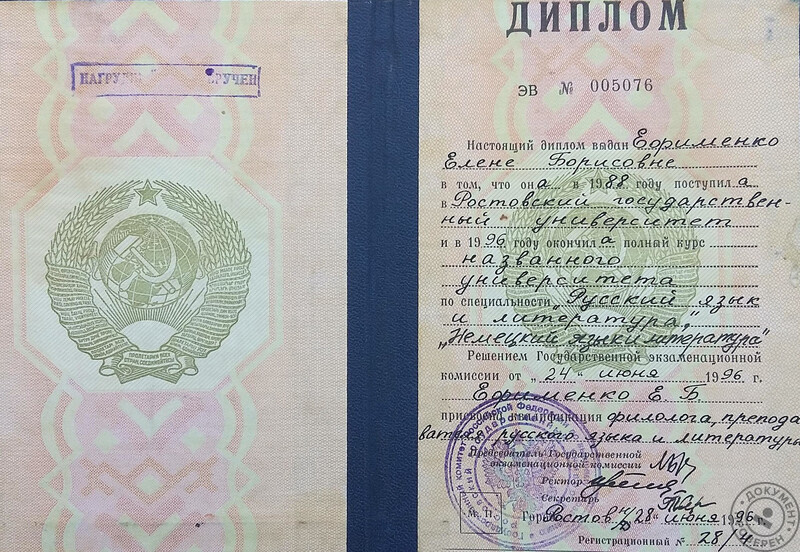 ВРУЧЕН
ПРОЛЕТАРИИ ВСЕХ
СТРАН, СОЕДИНЯЙТЕСЬ!
ДИПЛОМ
ЭВ № 005076
Настоящий диплом выдан Ефименко
Елене Борисовне
в том, что она в 1988 году поступила
в Ростовский государствен-
ный университет
и в 1996 году окончила полный курс
названного
университета
по специальности „Русский язык
и литература"
„Немецкий язык и литература"
Решением Государственной экзаменационной
комиссии от „24" июня 1996 г.
Ефименко Е. Б
присвоена квалификация филолога, препода
вателя русского языка и литературы
Председатель Государственной
экзаменационной комиссии
Ректор
Секретарь
М. П.
Город Ростов н/Д „28" июня 1996 г.
Регистрационный № 28/4
ДОКУМЕНТ